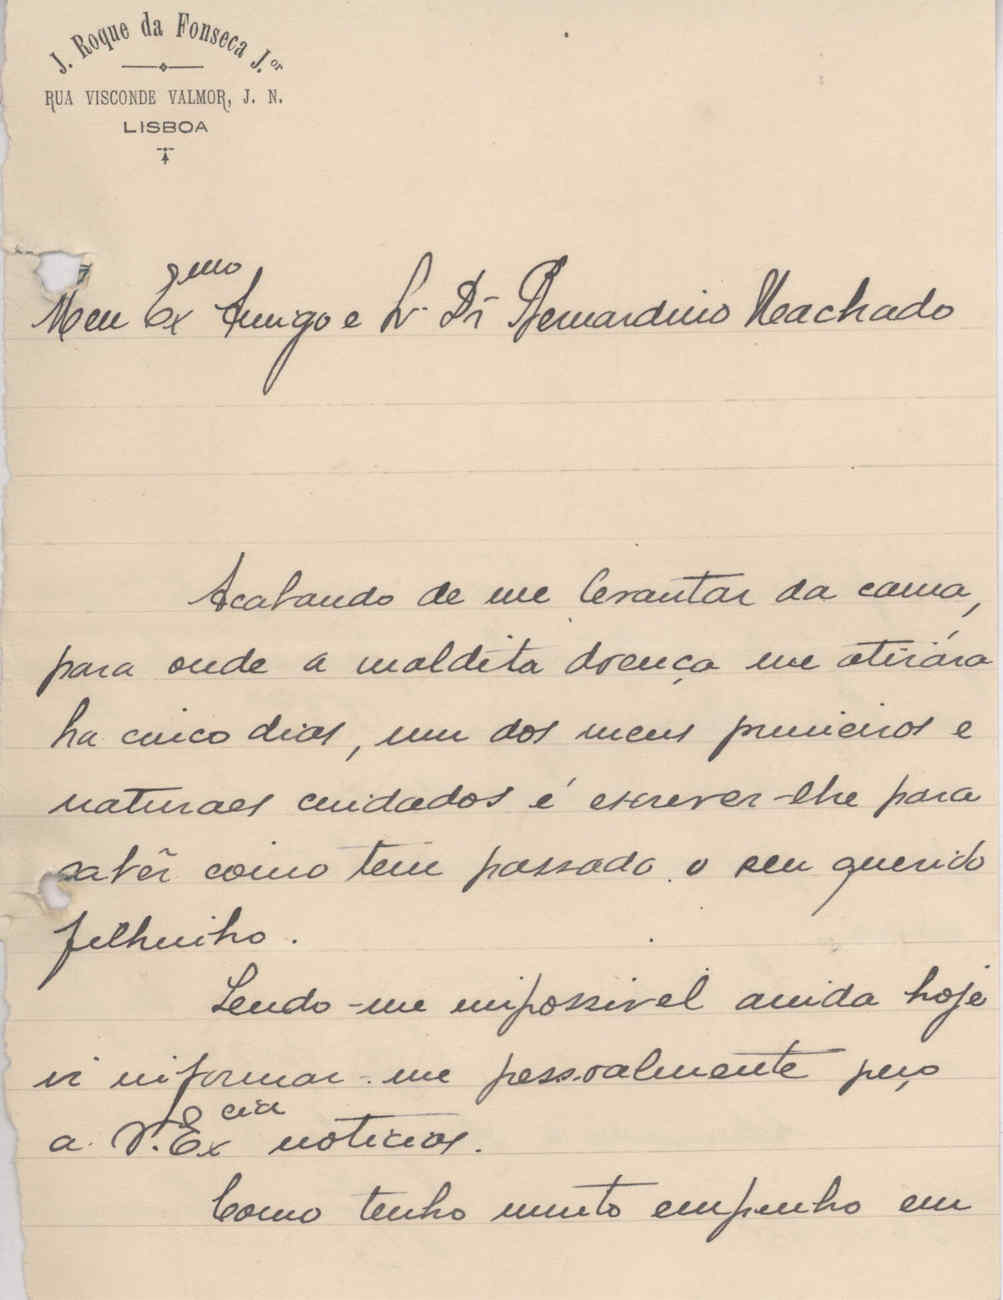 J. Roque da Fonseca J.or
RUA VISCONDE VALMOR, J. N.
LISBOA
Meu Exmo Amigo e Sr Dr Bernardino Machado
Acabando de me levantar da cama,
para onde a maldita doença me atirára
ha cinco dias, um dos meus primeiros e
naturaes cuidados é escrever-lhe para
saber como tem passado o seu querido
filhinho.
Sendo-me impossivel ainda hoje
ir informar-me pessoalmente peço
a V. Excia noticias.
Como tenho muito empenho em